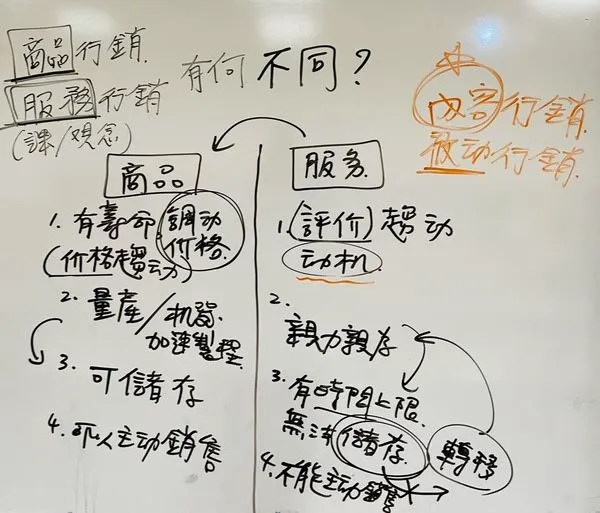 商品行銷
服務行銷
(課/观念)
有何不同?
內容行銷
被动行銷
商品
1. 有壽命,調动价格
(价格趨动)
2. 量產/机器
加速製程
3. 可儲存
4. 可以主動銷售
服务
1. (評价)趨动
动机
2.
親力親存
3. 有時間上限
無法儲存
轉移
4. 不能主動銷售